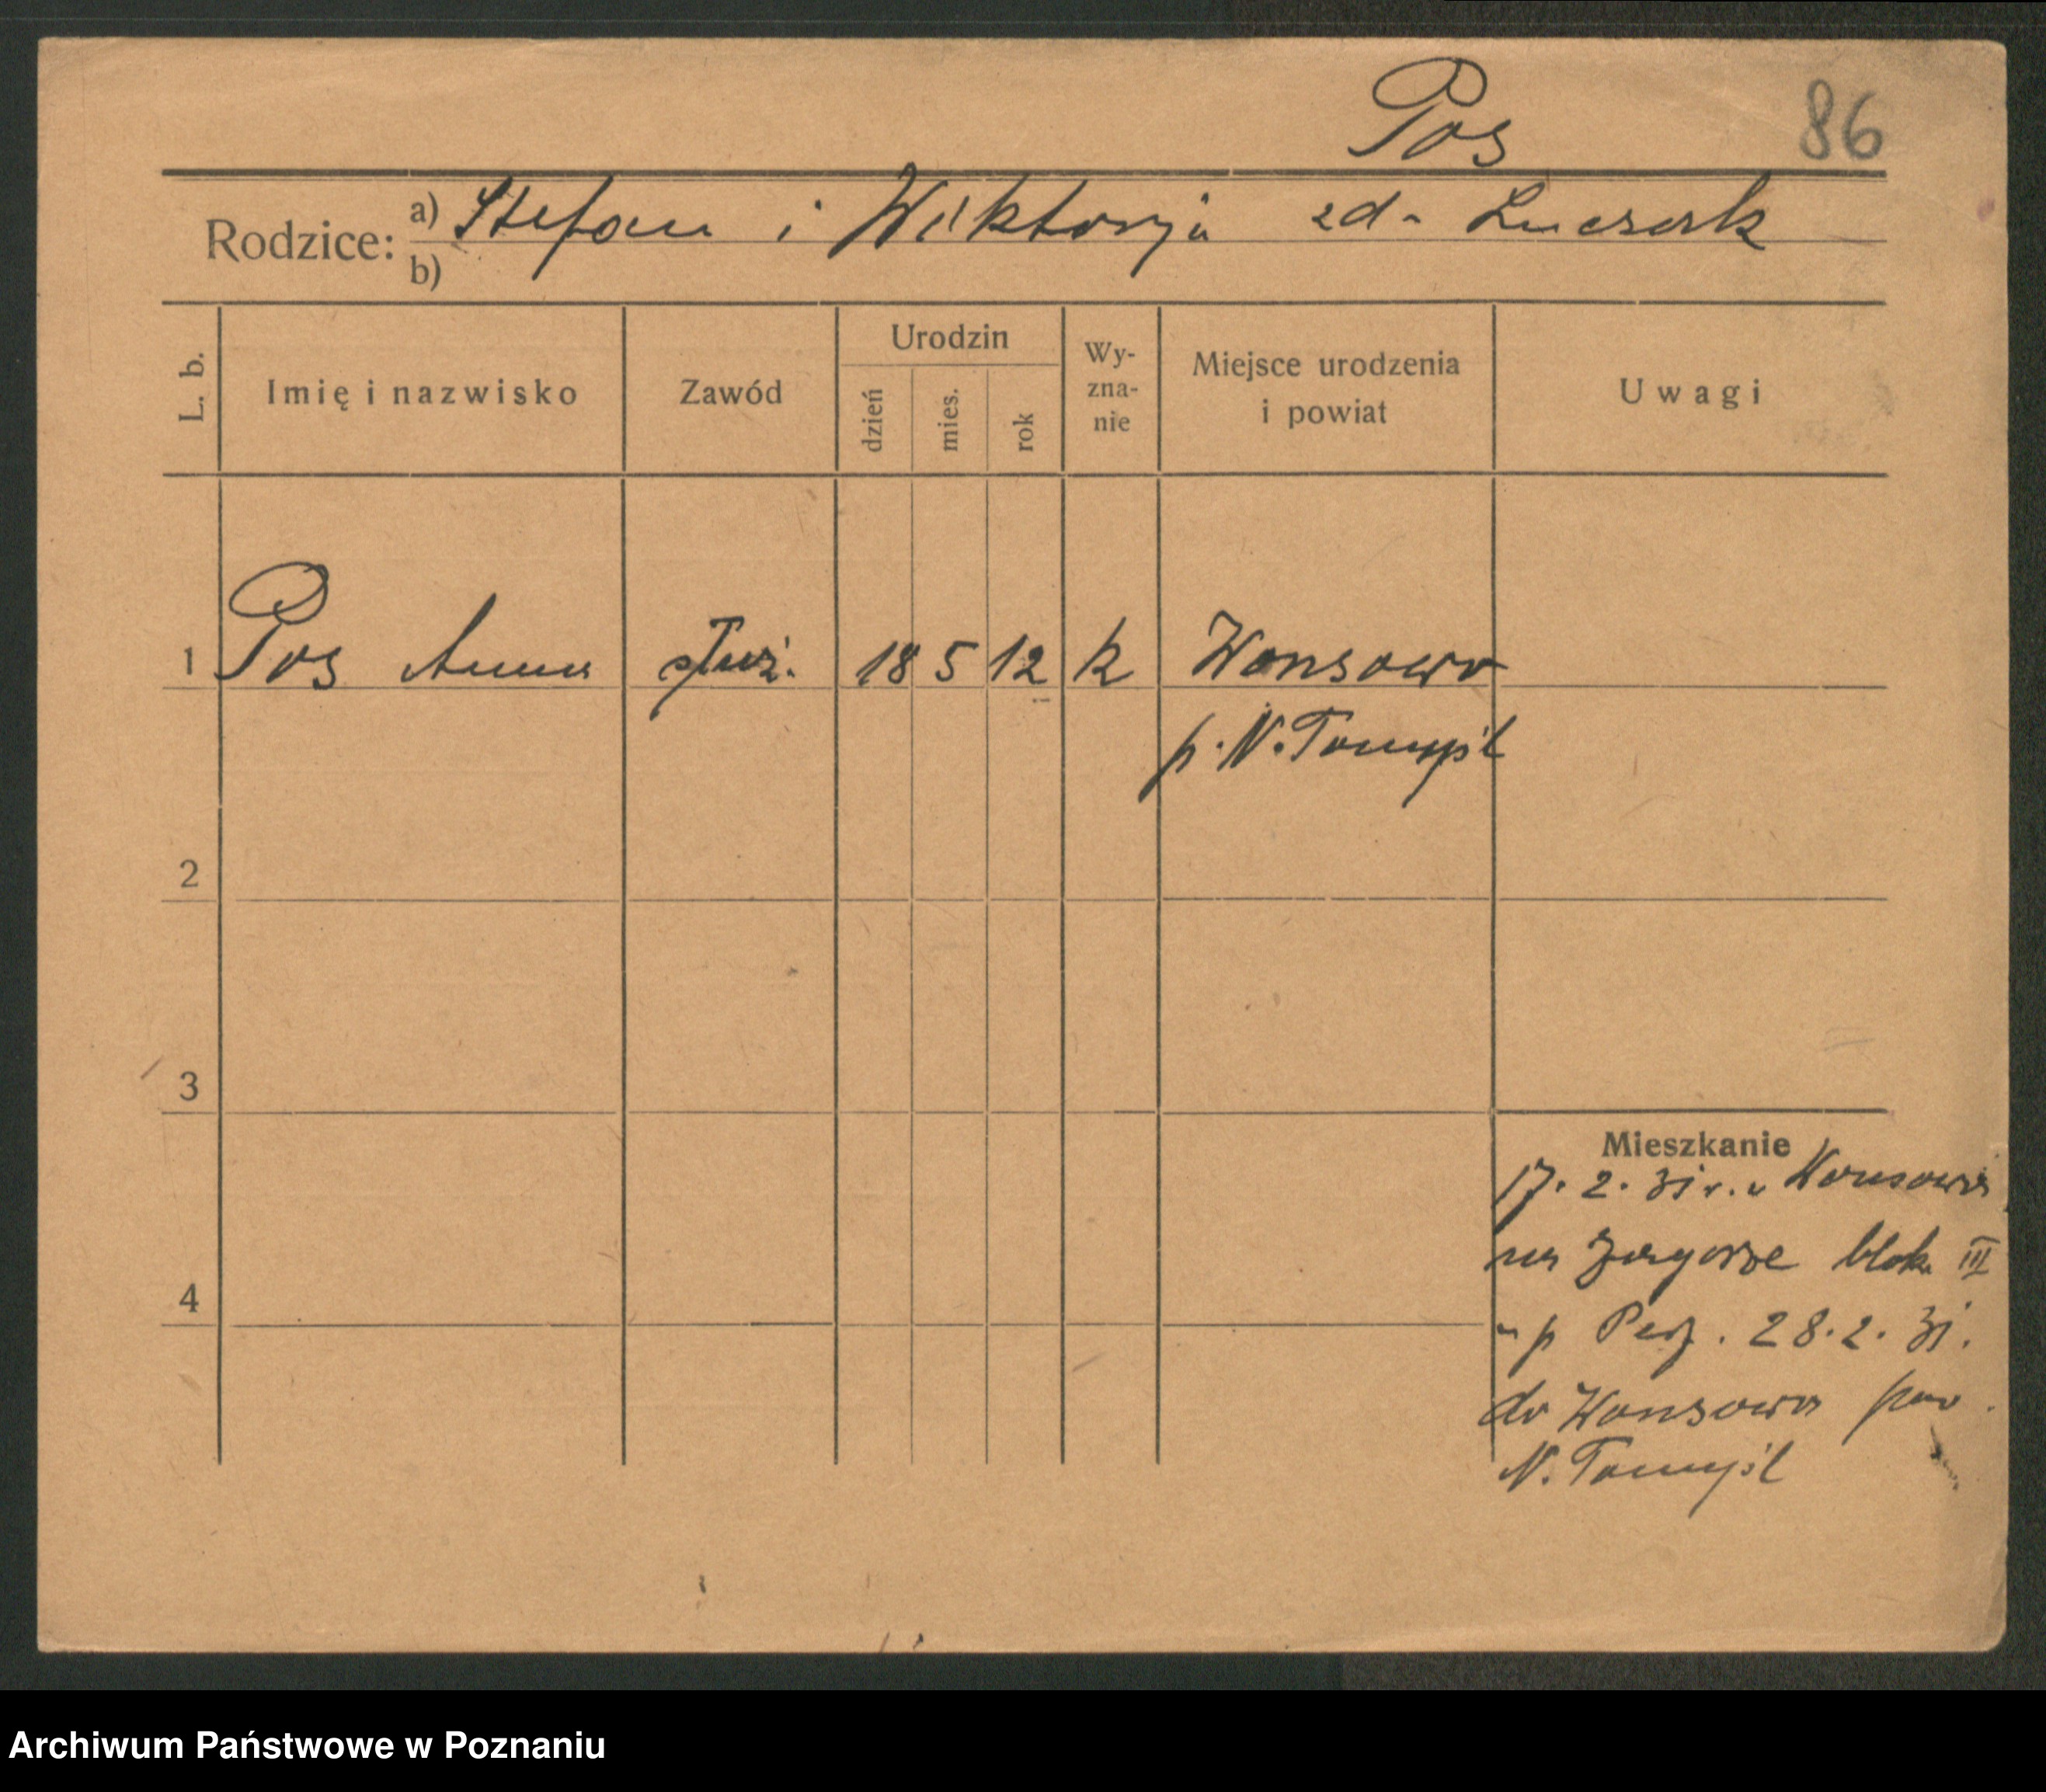 Pos
86
Rodzice: a) Stefan i Wiktorja zd. Luczak
b)
L. b. Imię i nazwisko Zawód Urodzin dzień mies. rok Wy-zna-nie Miejsce urodzenia i powiat Uwagi
1 Pos Anna służ. 18 5 12 k Wonsowo
p. N. Tomyśl
2
3
4
Mieszkanie
17. 2. 31 r. z Wonsowa
na Zagórze blok III
28. 2. 31.
do Wonsowa pow.
N. Tomyśl
Archiwum Państwowe w Poznaniu